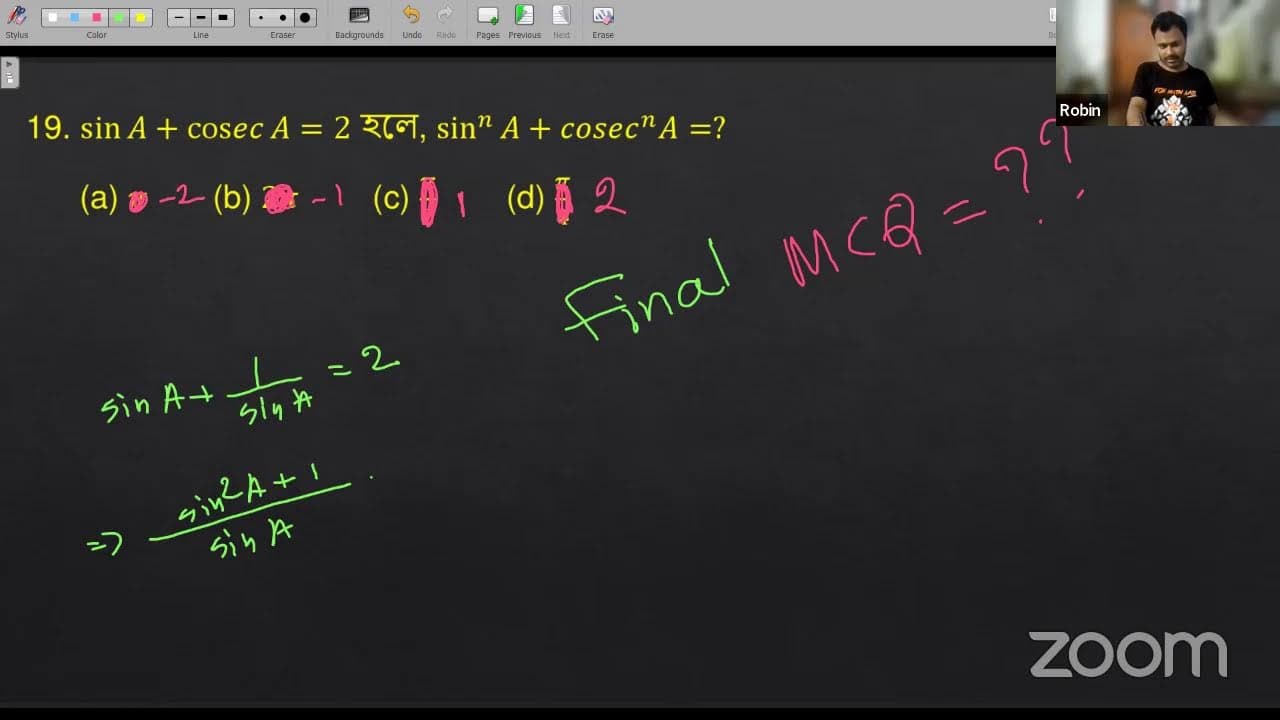 Stylus Color Line Eraser Backgrounds Undo Redo Pages Previous Next Erase
Robin
19. sin A + cosec A = 2 হলে, sinⁿ A + cosecⁿA =?
(a) -2 (b) -1 (c) 1 (d) 2
Final MCQ = ??
sin A + 1/sin A = 2
=> sin²A + 1 / sin A
zoom